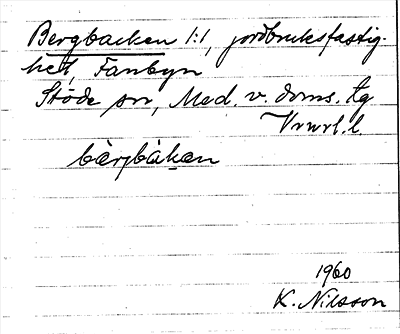 Bergbacken 1:1, jordbruksfastig-
het, Fanbyn
Stöde sn, Med. v. doms. tg
Vnrl. l.
bärjbàkan
1960
K. Nilsson